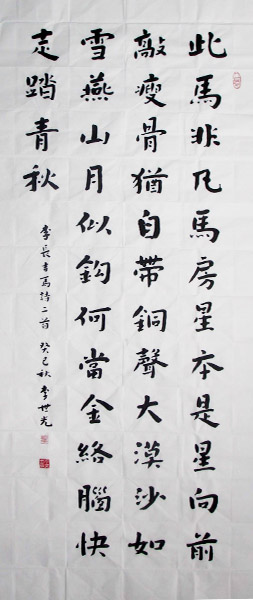 此馬非凡馬房星本是星向前
敲瘦骨猶自帶銅聲大漠沙如
雪燕山月似鈎何當金絡腦快
走踏青秋
李長吉馬詩二首 癸巳秋 李世光